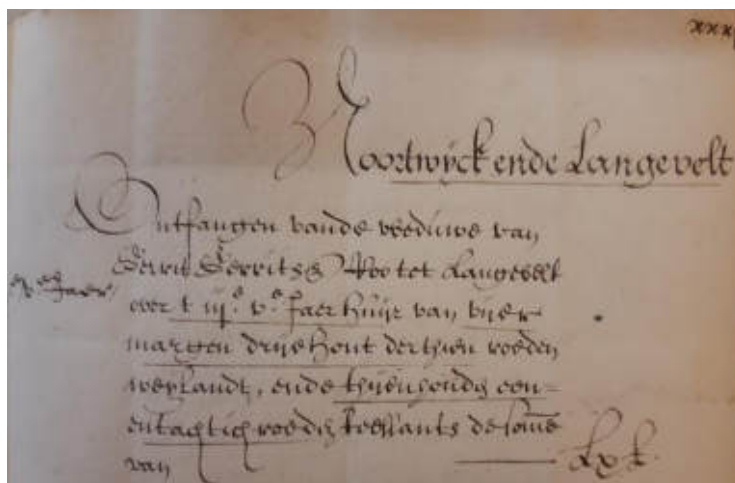 xxx
Noortwyck ende Langevelt
Ontfangen vande weduwe van
Gerrit Gerritsz Roo tot Langevelt
over t iije ve Jaer huijr van vijer
margen drije hont derthien roeden
weylandt, ende thijen hondt een-
entachtich roeden teellants de somme
van lx £